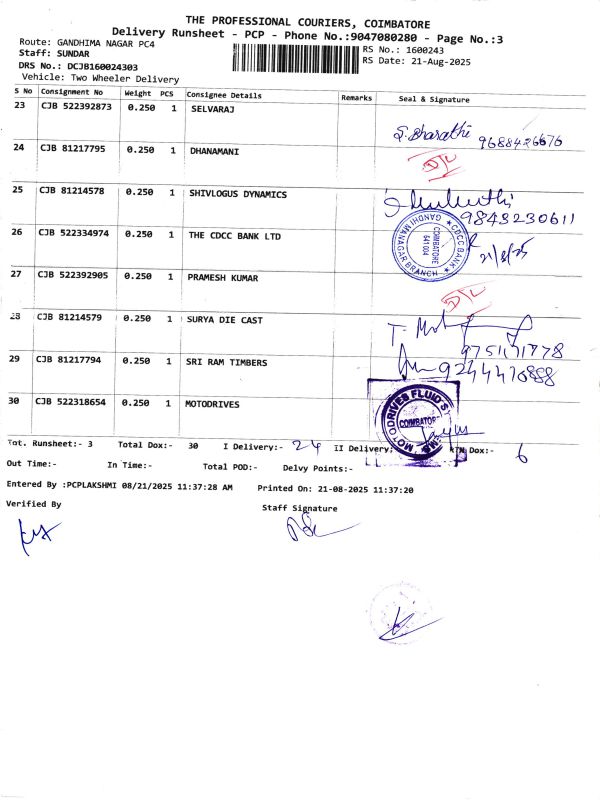 THE PROFESSIONAL COURIERS, COIMBATORE
Delivery Runsheet - PCP - Phone No.:9047080280 - Page No.:3
Route: GANDHIMA NAGAR PC4 RS No.: 1600243
Staff: SUNDAR RS Date: 21-Aug-2025
DRS No.: DCJB160024303
Vehicle: Two Wheeler Delivery
S No Consignment No Weight PCS Consignee Details Remarks Seal & Signature
23 CJB 522392873 0.250 1 SELVARAJ
S. Bharathi 9688426676
24 CJB 81217795 0.250 1 DHANAMANI
D/L
25 CJB 81214578 0.250 1 SHIVLOGUS DYNAMICS
9843230611
26 CJB 522334974 0.250 1 THE CDCC BANK LTD
CDCC BANK GANDHI MANAGAR BRANCH
COIMBATORE
641 004
21/8/25
27 CJB 522392905 0.250 1 PRAMESH KUMAR
D/L
28 CJB 81214579 0.250 1 SURYA DIE CAST
9751171778
29 CJB 81217794 0.250 1 SRI RAM TIMBERS
9244470888
30 CJB 522318654 0.250 1 MOTODRIVES
MOTODRIVES FLUID
COIMBATOR
Tot. Runsheet:- 3 Total Dox:- 30 I Delivery:- 24 II Delivery: RTN Dox:- 6
Out Time:- In Time:- Total POD:- Delvy Points:-
Entered By :PCPLAKSHMI 08/21/2025 11:37:28 AM Printed On: 21-08-2025 11:37:20
Verified By Staff Signature